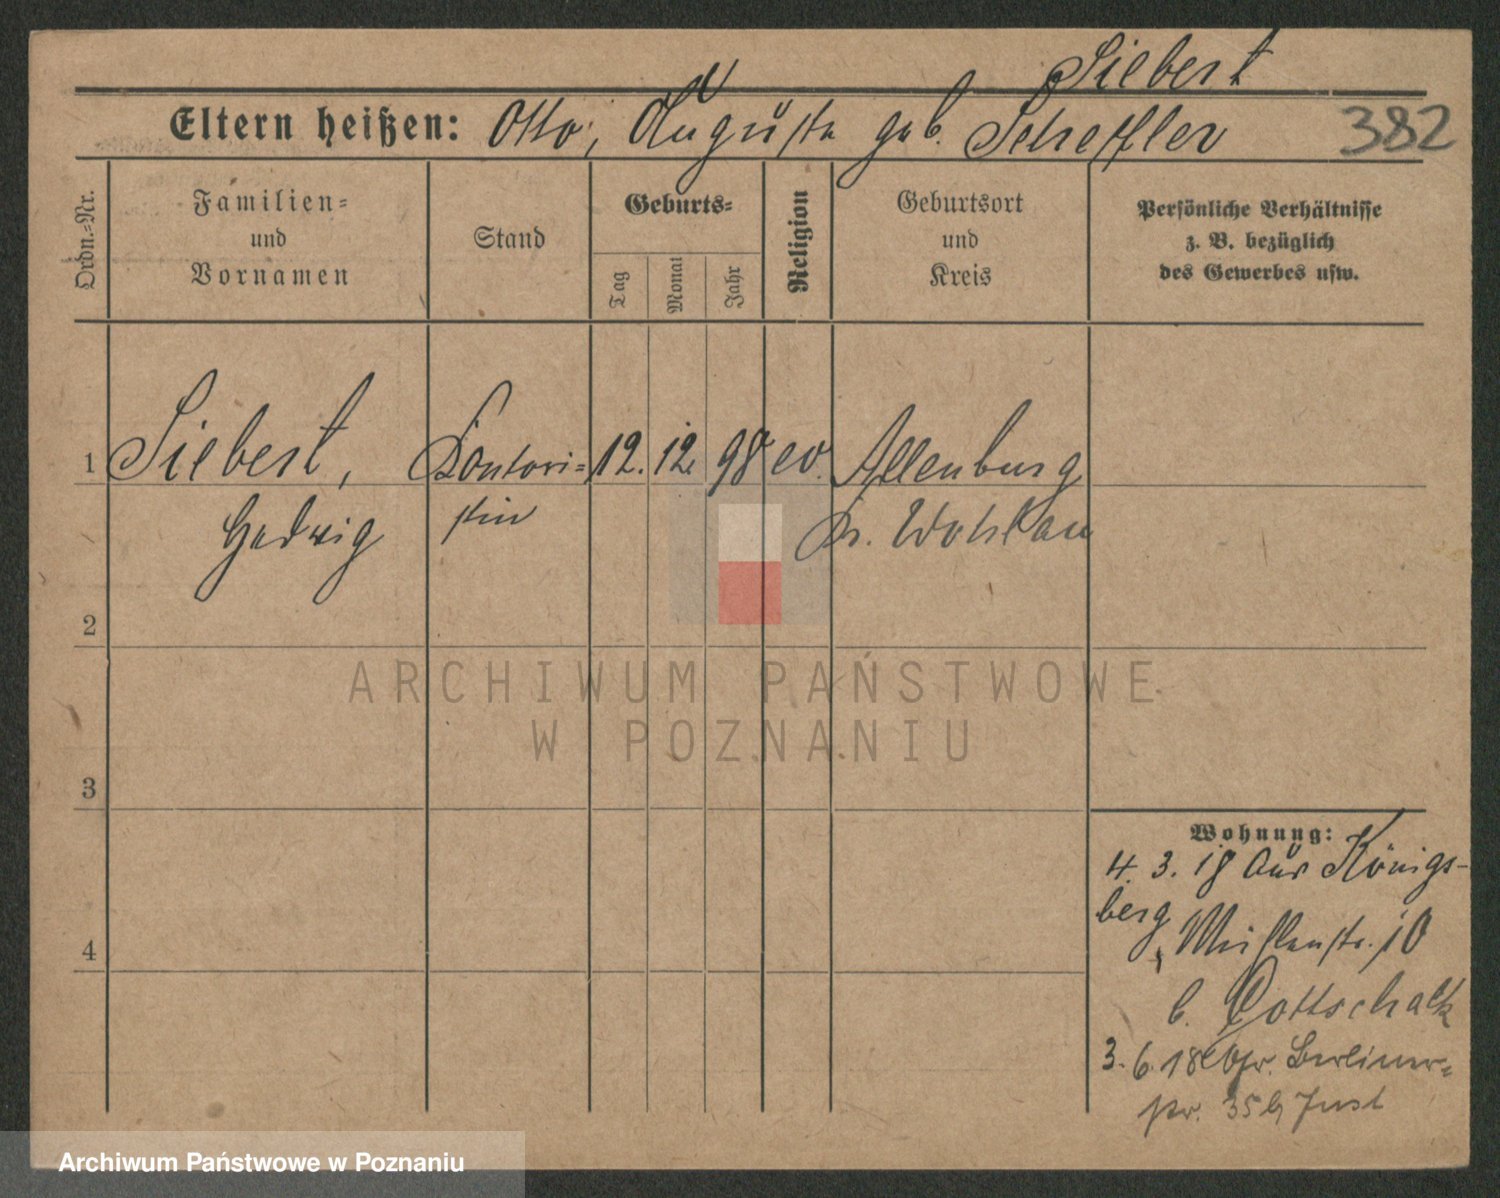 Siebert
Eltern heißen: Otto, Auguste geb. Scheffler 382
Ordn.-Nr.
Familien-
und
Vornamen
Stand
Geburts-
Tag
Monat
Jahr
Religion
Geburtsort
und
Kreis
Persönliche Verhältnisse
z. B. bezüglich
des Gewerbes usw.
1 Siebert, Kontori- 12. 12. 98 ev. Allenburg
Hedwig stin Kr. Wehlau
2
3
4
Wohnung:
4. 3. 18 aus Königs-
berg, Mühlenstr. 10
b. Gottschalk
3. 6. 18 Berliner-
str. 35 b Just
ARCHIWUM PAŃSTWOWE
W POZNANIU
Archiwum Państwowe w Poznaniu